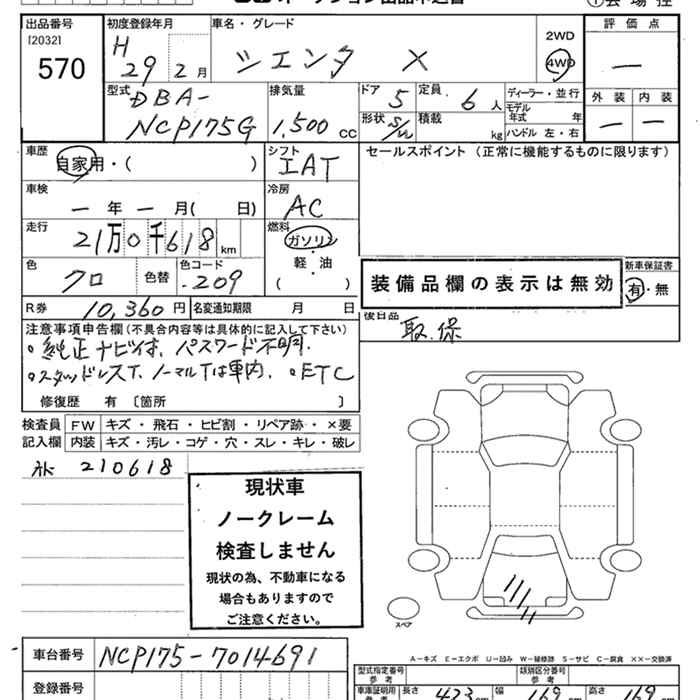 出品番号
[2032]
570
初度登録年月
H 29 2 月
車名・グレード
シエンタ X
2WD
4WD
評価点
—
型式
DBA-
NCP175G
排気量
1,500 cc
ドア 5
定員 6 人
形状 S/W
積載 kg
ディーラー・並行
モデル年式 年
ハンドル 左・右
外装 内装
— —
車歴
自家用・( )
シフト
IAT
セールスポイント(正常に機能するものに限ります)
車検
— 年 — 月( 日)
冷房
AC
走行
21万0千618 km
燃料
ガソリン
軽・油
( )
色
クロ
色替
色コード
209
装備品欄の表示は無効
新車保証書
有・無
R券 10,360 円
名変通知期限 月 日
後日品
取.保
注意事項申告欄(不具合内容等は具体的に記入して下さい)
。純正ナビイオ、パスワード不明.
。スタッドレスT、ノーマルTは車内、。ETC
修復歴 有〔箇所 〕
検査員 FW キズ・飛石・ヒビ割・リペア跡・×要
記入欄 内装 キズ・汚レ・コゲ・穴・スレ・キレ・破レ
210618
現状車
ノークレーム
検査しません
現状の為、不動車になる
場合もありますので
ご注意ください。
スペア
車台番号 NCP175-7014691
A-キズ E-エクボ U-凹み W-補修跡 S-サビ C-腐食 XX-交換済
登録番号
型式指定番号 参考
類別区分番号 参考
車庫証明用 参考
長さ 423 cm 幅 169 cm 高さ 169